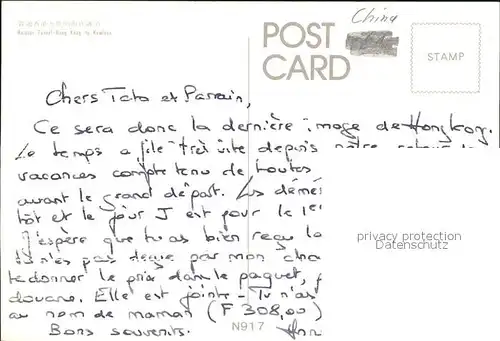 Harbour Tunnel-Hong Kong to Kowloon
China
POST
CARD
STAMP
Chers Tato et Parrain,
Ce sera donc la dernière image de Hongkong.
Le temps a filé très vite depuis notre
vacances compte tenu de toutes
avant le grand départ. Les démé
tôt et le jour J est pour le 1er
J'espère que tu as bien reçu la
tu n'es pas déçue par mon
te donner le prix dans le paquet,
douane. Elle est jointe - Tu n'as
au nom de maman (F 308,00)
Bons souvenirs.
privacy protection
Datenschutz
N917